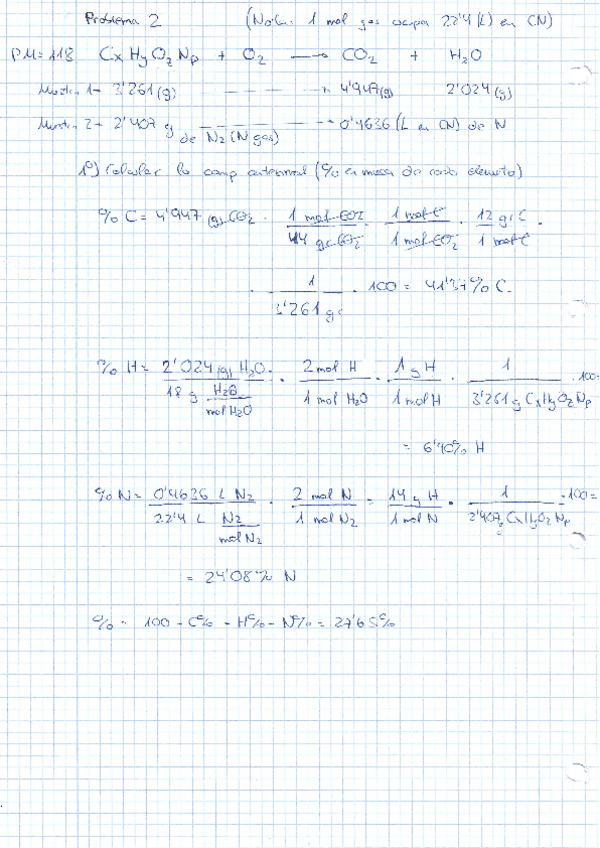 Problema 2 (Nota: 1 mol gas ocupa 22'4 (L) en CN)
PM=118 CxHyOzNp + O2 → CO2 + H2O
Muestra 1→ 3'261 (g) ------→ 4'947 (g) 2'024 (g)
Muestra 2→ 2'407 g de N2 (N gas) ------→ 0'4636 (L en CN) de N
1º) Calcular la comp centesimal (% en masa de cada elemento)
% C = 4'947 (g) CO2 · 1 mol CO2 / 44 g CO2 · 1 mol C / 1 mol CO2 · 12 gr C / 1 mol C ·
· 1 / 3'261 gr · 100 = 41'37% C.
% H = 2'024 (g) H2O / 18 g H2O / mol H2O · 2 mol H / 1 mol H2O · 1 g H / 1 mol H · 1 / 3'261 g CxHyOzNp · 100 =
= 6'90% H
% N = 0'4636 L N2 / 22'4 L N2 / mol N2 · 2 mol N / 1 mol N2 = 14 g H / 1 mol N · 1 / 2'407 g CxHyOzNp · 100 =
= 24'08% N
% = 100 - C% - H% - N% = 27'65%